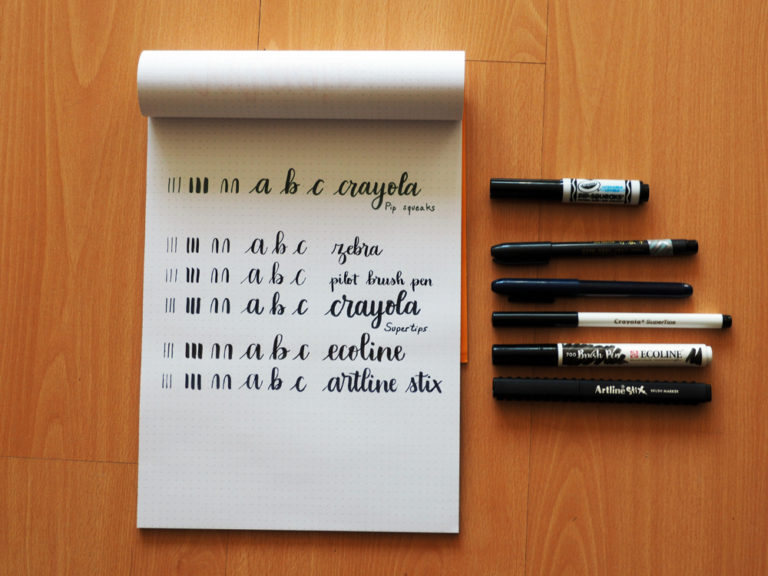 a b c crayola
Pip squeaks
a b c zebra
a b c pilot brush pen
a b c crayola
Supertips
a b c ecoline
a b c artline stix
PIP-SQUEAKS
Crayola Supertips
700 Brush Pen ECOLINE
Artline Stix BRUSH MARKER